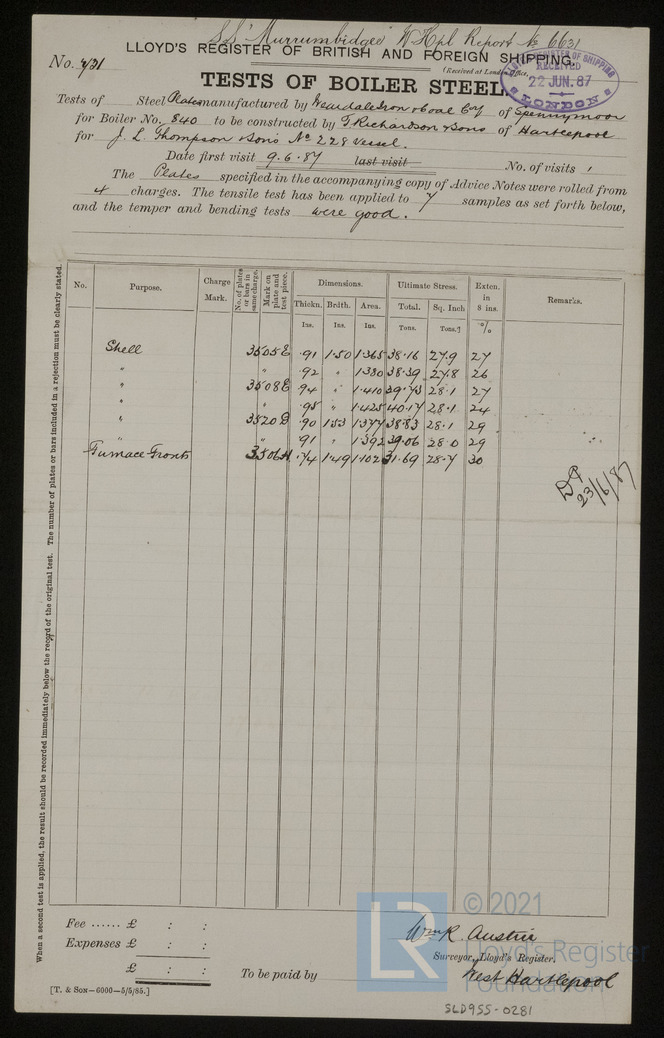 S.S. "Murrumbidgee" W Hpl Report No 6631
LLOYD'S REGISTER OF BRITISH AND FOREIGN SHIPPING.
No. 731
(Received at London Office,
LLOYD'S REGISTER OF SHIPPING
RECEIVED
22 JUN. 87
LONDON
TESTS OF BOILER STEEL
Tests of Steel Plates manufactured by Weardale Iron & Coal Coy of Spennymoor
for Boiler No. 840 to be constructed by T. Richardson & Sons of Hartlepool
for J. L. Thompson & Sons No 228 Vessel.
Date first visit 9.6.87 last visit No. of visits 1
The Plates specified in the accompanying copy of Advice Notes were rolled from
4 charges. The tensile test has been applied to 7 samples as set forth below,
and the temper and bending tests were good.
No. Purpose. Charge Mark. No. of plates or bars in same charge. Mark on plate and test piece. Dimensions. Ultimate Stress. Exten. in 8 ins. Remarks.
Thickn. Brdth. Area. Total. Sq. Inch
Ins. Ins. Ins. Tons. Tons. %
Shell 3505E .91 1.50 1.365 38.16 27.9 27
" " .92 " 1.380 38.39 27.8 26
" 3508E .94 " 1.410 39.73 28.1 27
" " .95 " 1.425 40.17 28.1 24
" 3520D .90 1.53 1.377 38.83 28.1 29
" " .91 " 1.392 39.06 28.0 29
Furnace Fronts 3506H .74 1.49 1.102 31.69 28.7 30
23/6/87
When a second test is applied, the result should be recorded immediately below the record of the original test. The number of plates or bars included in a rejection must be clearly stated.
Fee ...... £ : :
Expenses £ : :
£ : :
To be paid by
Wm R. Austin
Surveyor, Lloyd's Register.
West Hartlepool
[T. & Son—6000—5/5/85.]
LR
© 2021
Lloyd's Register
Foundation
SLD955-0281